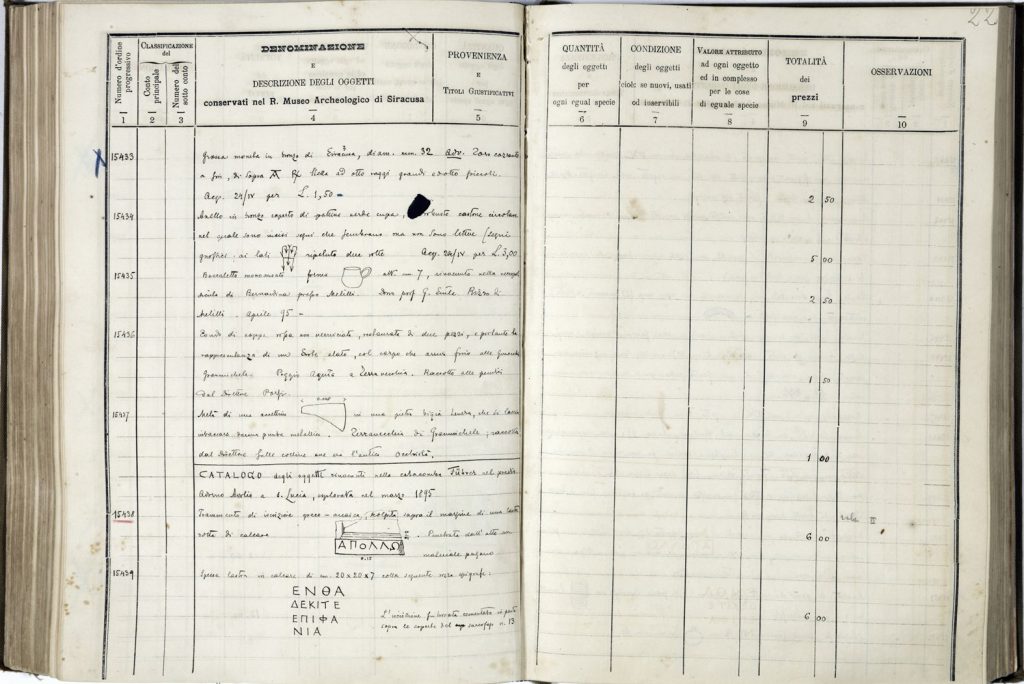 22
Numero d'ordine progressivo
CLASSIFICAZIONE
del
Conto principale
Numero del sotto conto
DENOMINAZIONE
E
DESCRIZIONE DEGLI OGGETTI
conservati nel R. Museo Archeologico di Siracusa
PROVENIENZA
E
TITOLI GIUSTIFICATIVI
QUANTITÀ
degli oggetti
per
ogni egual specie
CONDIZIONE
degli oggetti
cioè: se nuovi, usati
od inservibili
VALORE ATTRIBUITO
ad ogni oggetto
ed in complesso
per le cose
di eguale specie
TOTALITÀ
dei
prezzi
OSSERVAZIONI
1 2 3 4 5 6 7 8 9 10
15433 Grossa moneta in bronzo di Siracusa, diam. mm. 32 adv.
di sopra stella ad otto raggi grandi e otto piccoli.
Acq. 24/IV per L. 1,50 2 50
15434 Anello in bronzo coperto di patina verde cupa, robusto castone circolare
nel quale sono incisi segni che sembrano ma non sono lettere (segni
gnostici; ai lati ripetuto due volte Acq. 24/IV per L. 3,00 5 00
15435 Boccaletto monoansato forma alt. cm 7, rinvenuto nella necropoli
sicula di Bernardina presso Melilli. Dono prof. G. Emile Rizzo di
Melilli. Aprile 95 2 50
15436 Fondo di coppa rossa non verniciata, restaurata di due pezzi, e portante la
rappresentanza di un Erote alato, col corpo che arriva fino alle ginocchia
Grammichele. Poggio Aquila e Terravecchia. Raccolto alle pendici
dal Direttore Orsi. 1 50
15437 Metà di una accettina in una pietra bigia tenera, che si lascia
intaccare da una punta metallica. Terravecchia di Grammichele, raccolta
dal Direttore sulle colline ove era l'antica Occhiolà. 1 00
CATALOGO degli oggetti rinvenuti nella catacomba Führer nel
Adorno Avolio a S. Lucia, esplorata nel marzo 1895
15438 Frammento di iscrizione greco-arcaica, scolpita sopra il margine di una lastra
rotta di calcare ΑΠΟΛΛΩ Penetrata dall'alto con
0.15 materiale pagano 6 00
II
15439 Spessa lastra in calcare di cm. 20x20x7 colla seguente rozza epigrafe:
ΕΝΘΑ
ΔΕΚΙΤΕ
ΕΠΙΦΑ
ΝΙΑ
L'iscrizione fu trovata cementata in
sopra le coperte del sarcofago n. 13 6 00